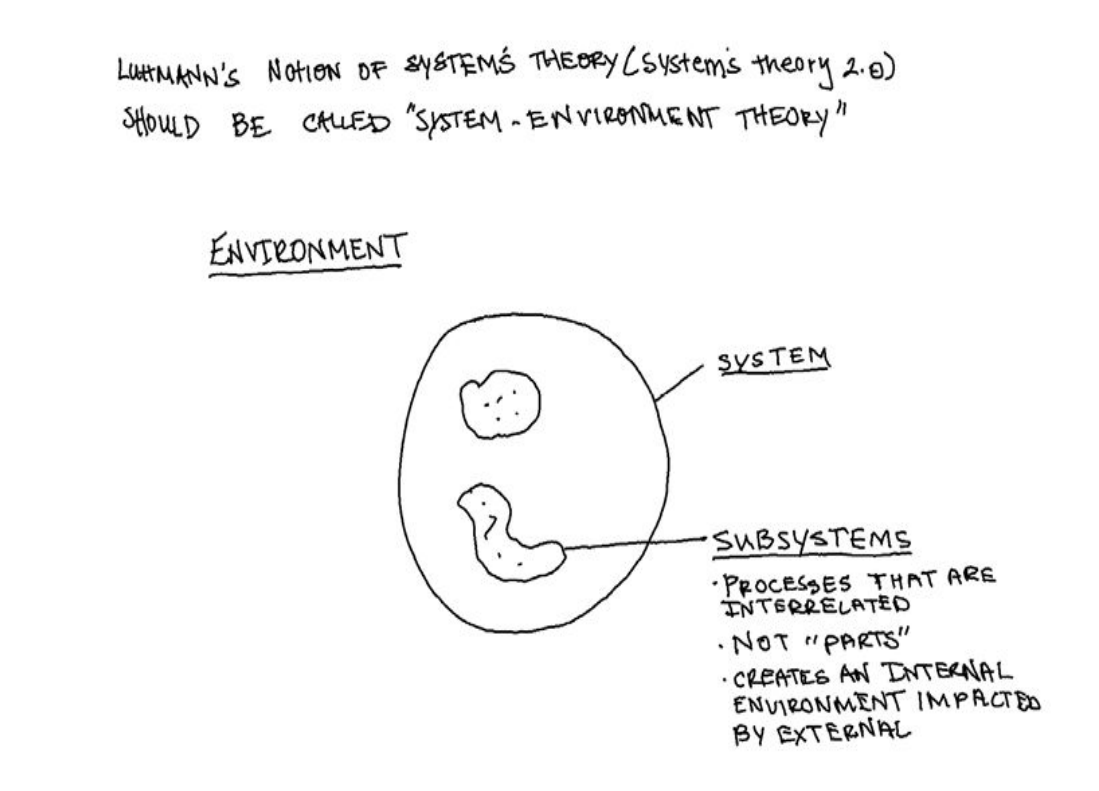 LUHMANN'S NOTION OF SYSTEM'S THEORY (System's theory 2.0)
SHOULD BE CALLED "SYSTEM-ENVIRONMENT THEORY"
ENVIRONMENT
SYSTEM
SUBSYSTEMS
· PROCESSES THAT ARE
INTERRELATED
· NOT "PARTS"
· CREATES AN INTERNAL
ENVIRONMENT IMPACTED
BY EXTERNAL